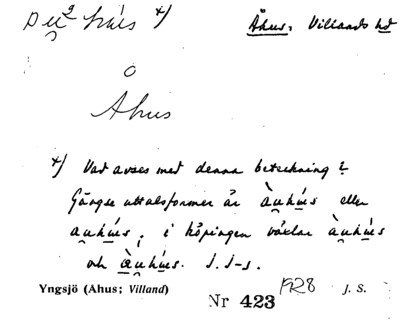 Åhus, Villands hd
Åhus
x) Vad avses med denna beteckning?
Gängse uttalsformer är àu̯hu̇s eller
au̯hu̇s; i köpingen växlar àu̯hu̇s
och àu̯hu̇s. J. J-s.
Yngsjö (Åhus; Villand)
Nr 423 1928 J. S.